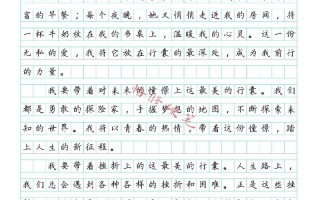 富的早餐；每个夜晚，她又悄悄走进我的房间，将
一杯牛奶放在我的书桌上，温暖我的心灵。这一份
无私的爱，我将它放在行囊的最深处，成为我前行
的力量。
我要带着对未来的憧憬上这最美的行囊。我们
都是勇敢的探险家，手握梦想的地图，不断探索未
知的世界。我将以青春的热情，带着这份憧憬，踏
上人生的新征程。
我要带着挫折上的这最美的行囊。人生路上，
我们总会遇到各种各样的挫折和困难。正是这些挫